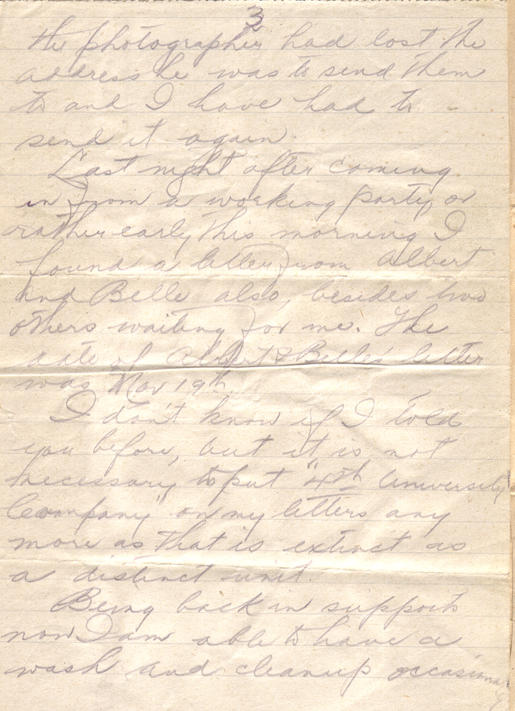 3
the photographer had lost the
address he was to send them
to and I have had to -
send it again.
Last night after coming
in from a working party, or
rather early this morning I
found a letter from Albert
and Belle also, besides two
others waiting for me. The
date of Albert & Belle's letter
was Nov 19th.
I don't know if I told
you before, but it is not
necessary to put "4th University
Company" on my letters any
more as that is extinct as
a distinct unit.
Being back in supports
now I am able to have a
wash and cleanup occasional